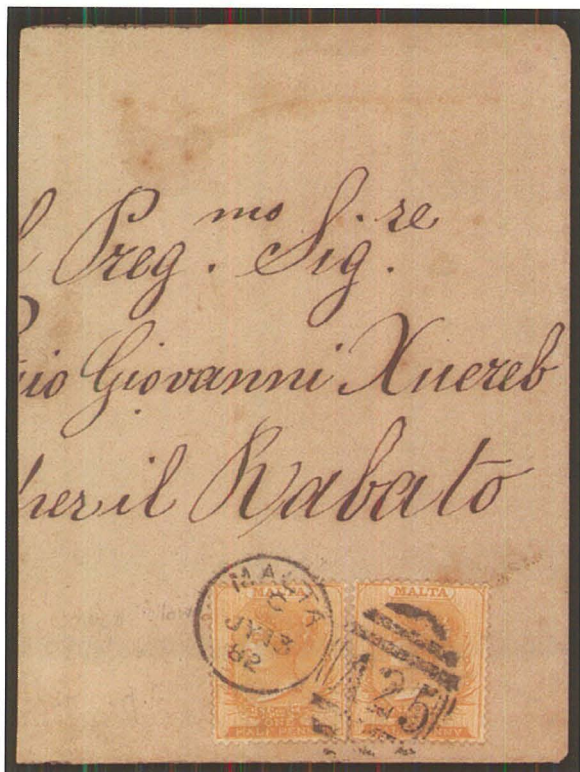 l Preg.mo Sig.re
io Giovanni Xuereb
per il Rabato
MALTA
C
JY 13
82
MALTA
A25
HALF PENNY